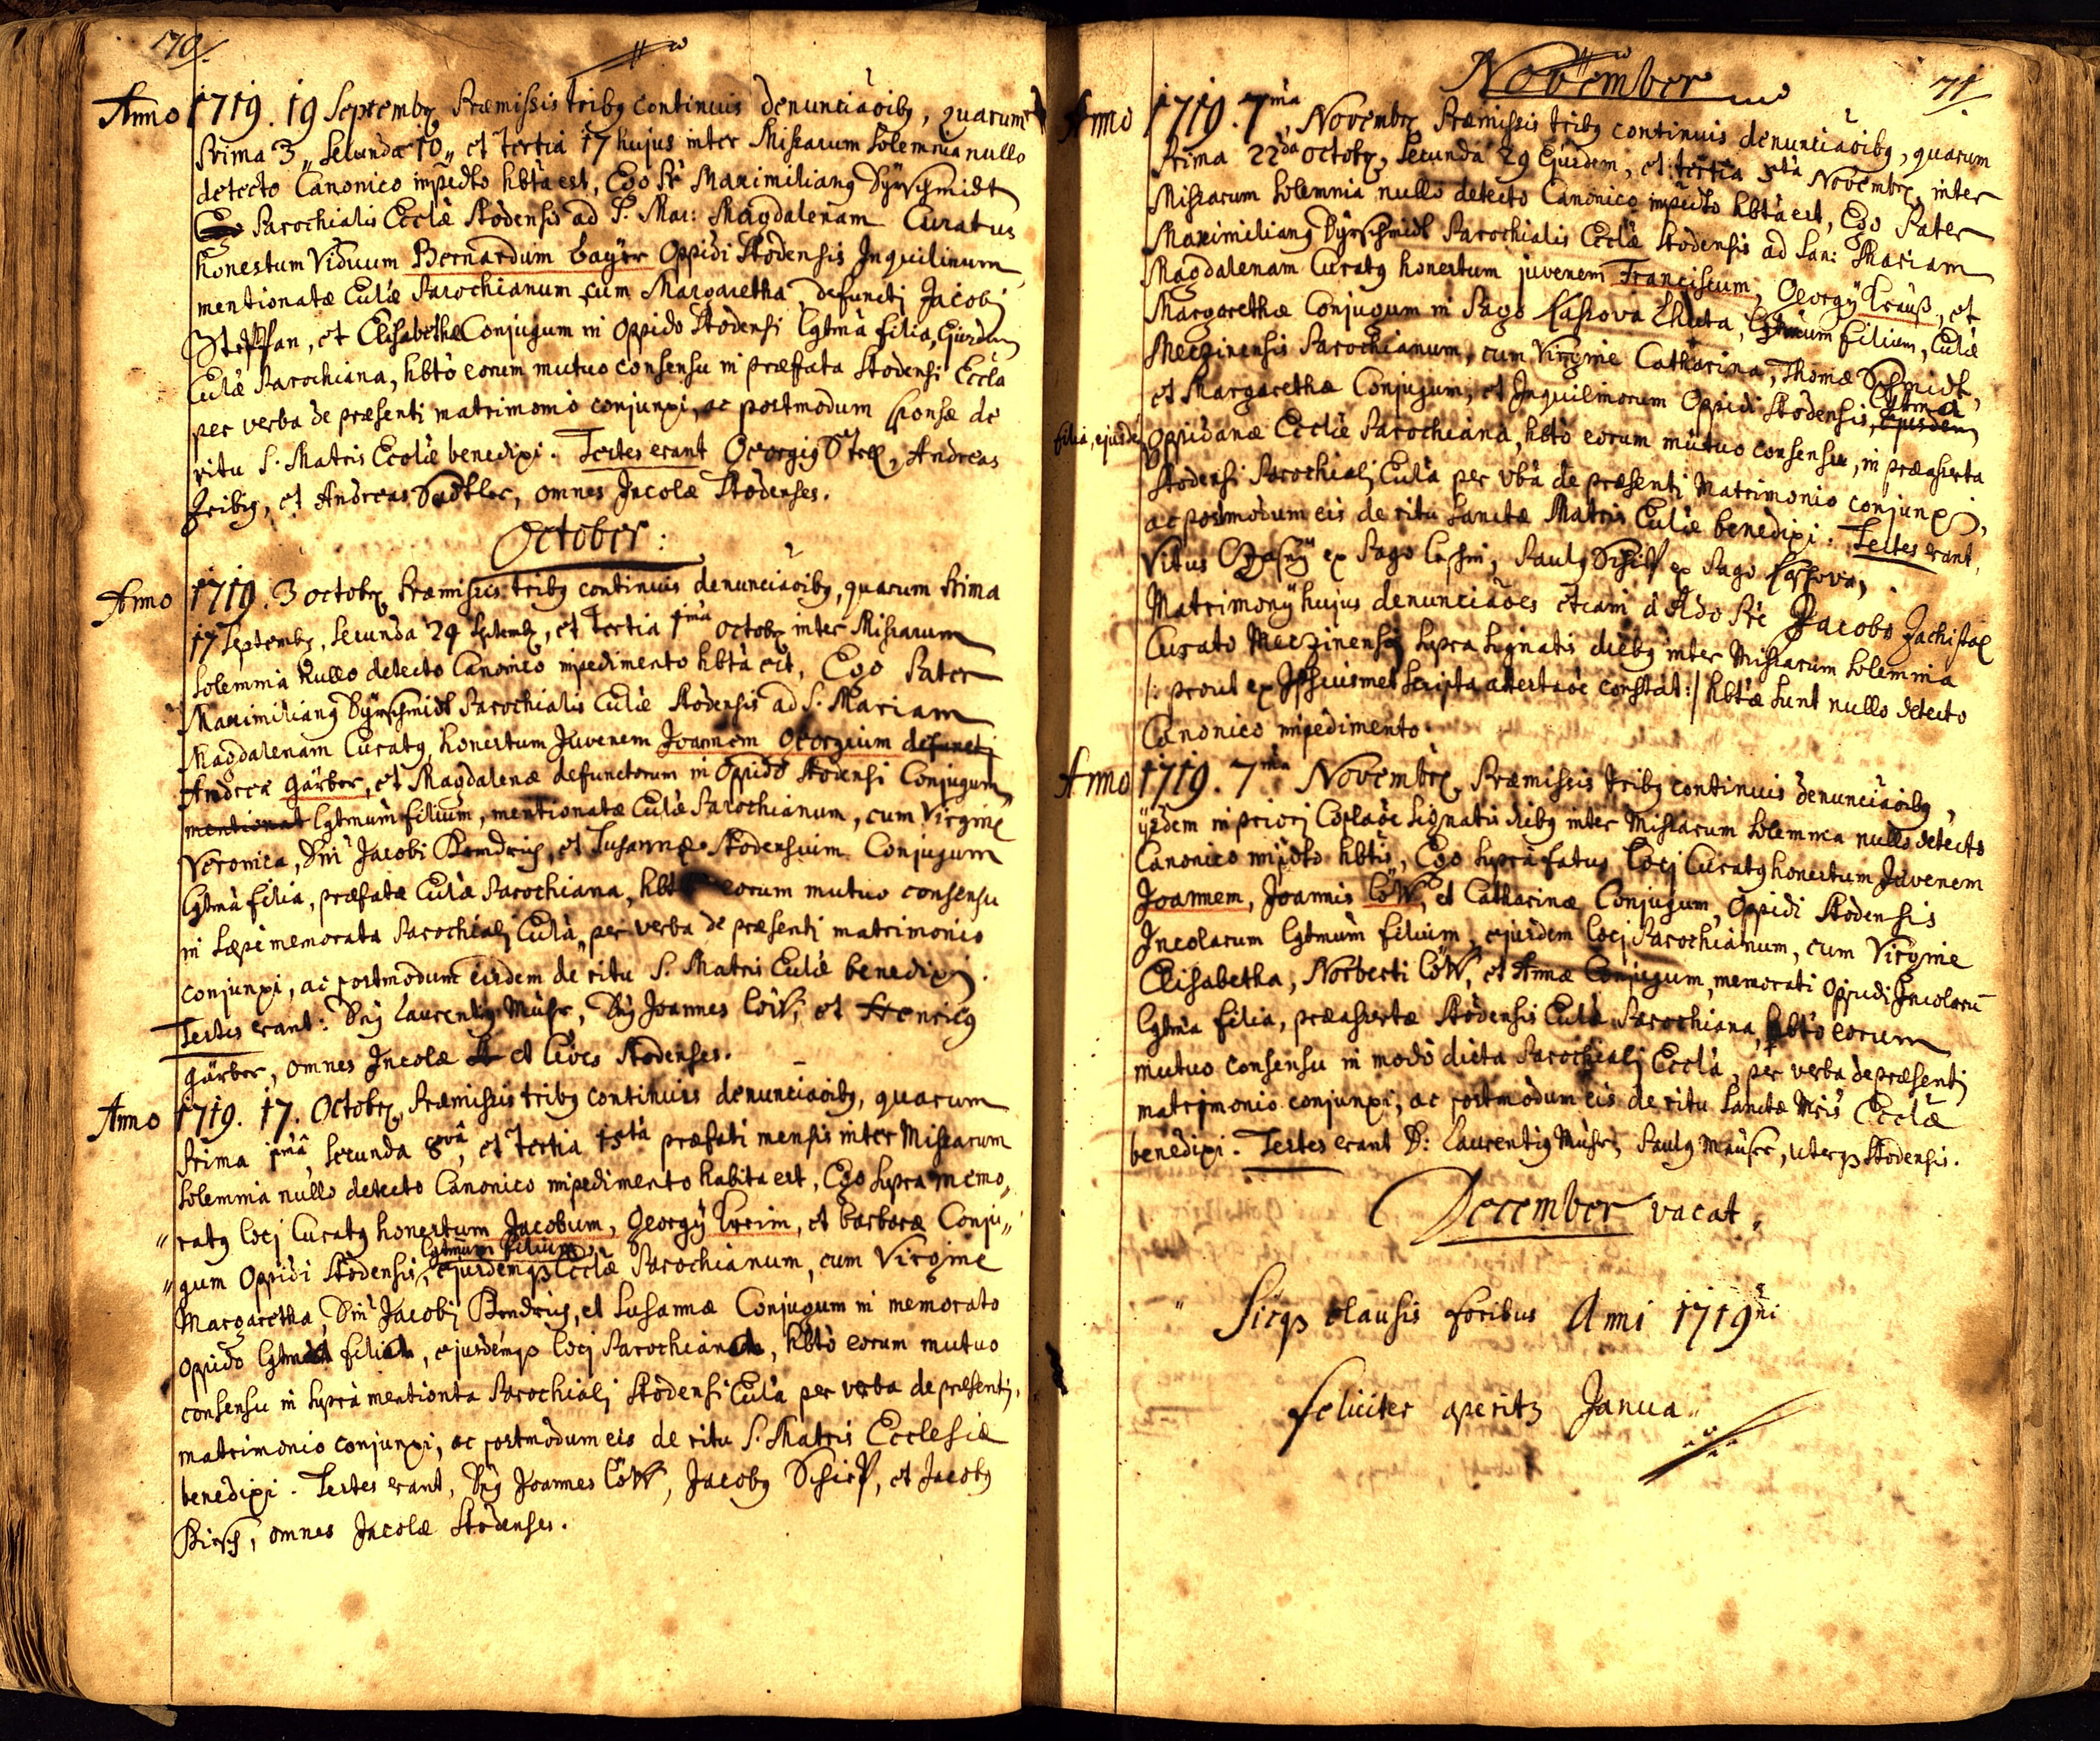 170
Anno 1719. 19 Septembr. Præmissis tribq continuis denunciãoibq, quarum
Prima 3 „ Secunda 10 „ et tertia 17 hujus inter Missarum Solemnia nullo
detecto Canonico impedto hbta est, Ego Pr Maximilianq Dyrschmidt
Parochialis Ecclæ Stodensis ad S. Mar: Magdalenam Curatus
honestum Viduum Bernardum bayer Oppidi Stodensis Inquilinum
mentionatæ Eccliæ Parochianum cum Margaretha, defuncti Jacobi
Steffan, et Elisabethæ Conjugum in Oppido Stodensi lgtma filia, Ejusdem
Eccliæ Parochiana, hbto eorum mutuo consensu in præffata Stodensi Eccla
per verba de præsenti matrimonio conjunxi, ac postmodum sponsæ de
ritu S. Matris Ecclæ benedixi. Testes erant Georgiq, Andreas
et Andreas Sadtler, omnes Incolæ Stodenses.
October:
Anno 1719. 3 octobr. Præmissis tribq continuis denunciãoibq, quarum Prima
17 Septembr, Secunda 24 Septembr, et Tertia 1ma octobr inter Missarum
Solemnia Nullo detecto Canonico impedimento hbta est, Ego Pater
Maximilianq Dyrschmidt Parochialis Eccliæ Stodensis ad S. Mariam
Magdalenam Curatq honestum Juvenem Joannem Georgium defuncti
Andreæ Gärber, et Magdalenæ defunctorum in Oppido Stodensi Conjugum
mentionat lgtmum filium, mentionatæ Eccliæ Parochianum, cum Virgine
Veronica, Dni Jacobi Bendriq, et Susannæ Stodensium Conjugum
lgtma filia, præfatæ Eccliæ Parochiana, hbto eorum mutuo consensu
in sæpe memorata Parochiali Eccla, per verba de præsenti matrimonio
conjunxi, ac postmodum eisdem de ritu S. Matris Eccliæ benedixi.
Testes erant: Dnq Laurentiq Muhr, Dnq Joannes Löw, et Henricq
Gärber, omnes Incolæ et Cives Stodenses.
Anno 1719. 17. Octobr. Præmissis tribq continuis denunciãoibq, quarum
Prima 1mâ, Secunda 8vâ, et Tertia 15tâ præfati mensis inter Missarum
Solemnia nullo detecto Canonico impedimento habita est, Ego supra memo„
„ratq loci Curatq honestum Jacobum, Georgÿ Kreim, et barbaræ Conju„
lgtmum filium
„gum Oppidi Stodensis, ejusdemqȝ Ecclæ Parochianum, cum Virgine
Margaretha, Dni Jacobi Bendriq, et Susannæ Conjugum in memorato
Oppido lgtma filia, ejusdemqȝ loci Parochiana, hbto eorum mutuo
consensu in supra mentionta Parochiali Stodensi Eccla per verba de præsenti,
matrimonio conjunxi, ac postmodum eis de ritu S. Matris Ecclesiæ
benedixi. Testes erant, Dnq Joannes Löw, Jacobq Schieß, et Jacobq
Birsch, omnes Incolæ Stodenses.
November
171
Anno 1719. 7ma, Novembr. Præmissis tribq continuis denunciãoibq, quarum
Prima 22da octobr, Secunda 29 Ejusdem, et tertia 5ta Novembr. inter
Missarum Solemnia nullo detecto Canonico impedto hbta est, Ego Pater
Maximilianq Dyrschmidt Parochialis Ecclæ Stodensis ad San: Mariam
Magdalenam Curatq honestum juvenem Franciscum, Georgÿ Krauß, et
Margarethæ Conjugum in Pago Lassova Lhuta, lgtmum filium, Eccliæ
Merzinensis Parochianum, cum Virgine Catharina, Thomæ Schmidt,
et Margarethæ Conjugum, et Inquilinorum Oppidi Stodensis, lgtma ejusdem
filia, ejusdem Oppidanæ Eccliæ Parochiana, hbto eorum mutuo consensu, in præaserta
Stodensi Parochiali Eccla per vba de præsenti Matrimonio conjunxi,
ac postmodum eis de ritu Sanctæ Matris Eccliæ benedixi. Testes erant,
Vitus ex Pago Paulq Schieß ex Pago Lassova,
Matrimonÿ hujus denunciãoes etiam à Ado Pre Jacobo
Curato Merzinensi supra signatis diebq inter Missarum Solemnia
/: prout ex Ipsiusmet scripta attestãoe constat :/ hbtæ sunt nullo detecto
Canonico impedimento.
Anno 1719. 7ma Novembr. Præmissis tribq continuis denunciãoibq,
ÿsdem in priori Coplãoe signatis diebq inter Missarum Solemnia nullo detecto
Canonico impdto hbtis, Ego suprà fatus loci Curatq honestum Juvenem
Joannem, Joannis Löw, et Catharinæ Conjugum, Oppidi Stodensis
Incolarum lgtmum filium, ejusdem loci Parochianum, cum Virgine
Elisabetha, Norberti Löw, et Annæ Conjugum, memorati Oppidi Incolarũ
lgtma filia, præasertæ Stodensis Eccliæ Parochiana, hbto eorum
mutuo consensu in modò dicta Parochiali Eccla, per verba de præsenti
matrimonio conjunxi, ac postmodum eis de ritu Sanctæ Mris Ecclæ
benedixi. Testes erant D: Laurentiq Muhr, Paulq Mauser, uterqȝ Stodensis.
December vacat „
Sicqȝ clausis foribus Anni 1719ni
feliciter aperitȝ Janua„